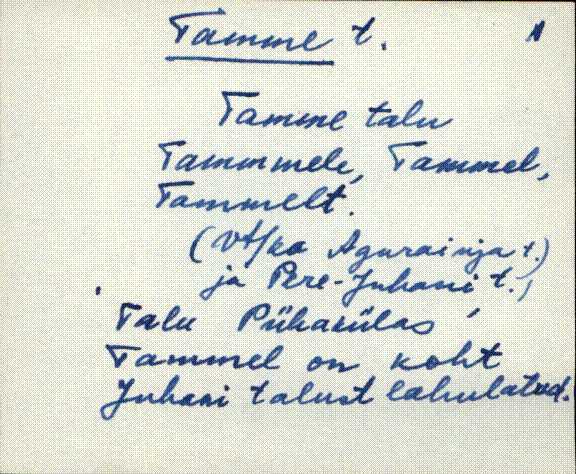 Tamme t.
Tamme talu
Tammmele, Tammel,
Tammelt.
(Vt/ka Agurainja t.)
ja Pere-Juhani t.,
Talu Pühakülas
Tammel on koht
Juhani talust lahulatud.